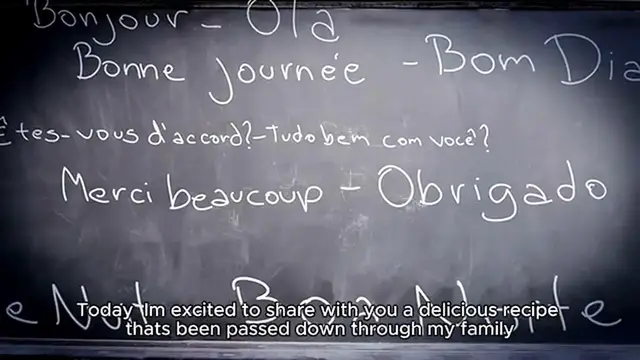 Bonjour - Olá
Bonne journée - Bom Dia
Êtes-vous d'accord?-Tudo bem com você?
Merci beaucoup - Obrigado
e Nuit Boa Noite
Today Im excited to share with you a delicious recipe
thats been passed down through my family